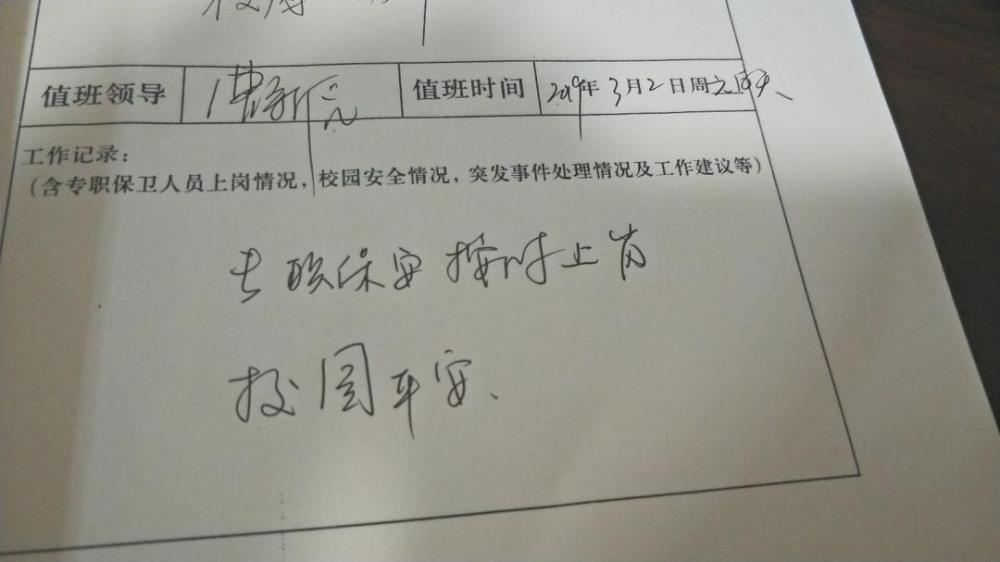 值班领导 值班时间 2019年3月2日周六
工作记录：
（含专职保卫人员上岗情况，校园安全情况，突发事件处理情况及工作建议等）
专职保安按时上岗
校园平安、